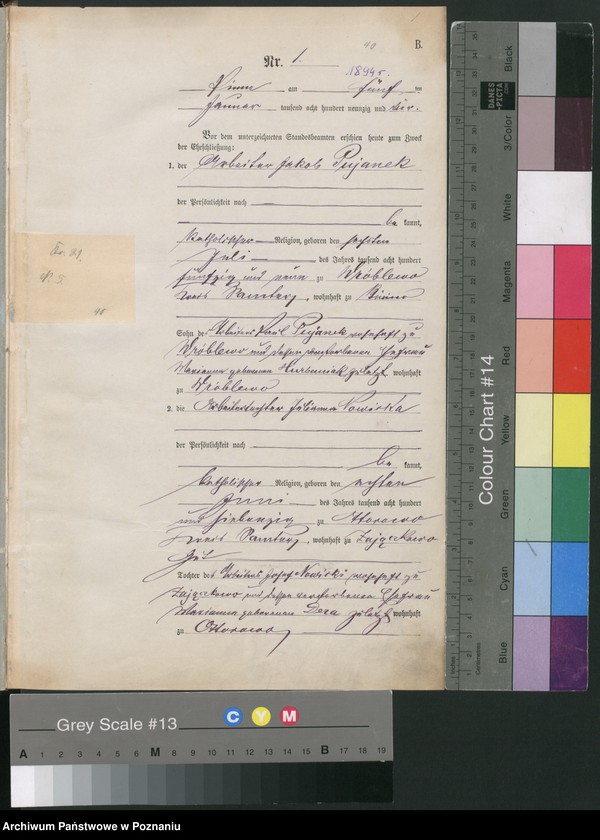 1
40
B.
Nr. 1.
1894 r.
Pinne am fünf ten
Januar tausend acht hundert neunzig und vier.
Vor dem unterzeichneten Standesbeamten erschien heute zum Zweck
der Eheschließung:
1. der Arbeiter Jakob Pujanek
der Persönlichkeit nach
be kannt,
katholischer Religion, geboren den sechsten
Juli des Jahres tausend acht hundert
fünfzig und neun zu Wróblewo
Kreis Samter, wohnhaft zu Pinne
Sohn des Arbeiters Paul Pujanek wohnhaft zu
Wróblewo und dessen verstorbenen Ehefrau
Marianna geborenen zuletzt wohnhaft
zu Wróblewo
2. die Arbeitertochter Julianna Nowicka
der Persönlichkeit nach
be kannt,
katholischer Religion, geboren den achten
Juni des Jahres tausend acht hundert
und siebenzig zu Ottorowo
Kreis Samter, wohnhaft zu Zajączkowo
Gut
Tochter des Arbeiters Josef Nowicki wohnhaft zu
Zajączkowo und dessen verstorbenen Ehefrau
Marianna geborenen Dera zuletzt wohnhaft
zu Ottorowo
Colour Chart #14
Black
3/Color
White
Magenta
Red
Yellow
Green
Cyan
Blue
DANES
PICTA
.COM
Grey Scale #13
C Y M
A 1 2 3 4 5 6 M 8 9 10 11 12 13 14 15 B 17 18 19
Archiwum Państwowe w Poznaniu